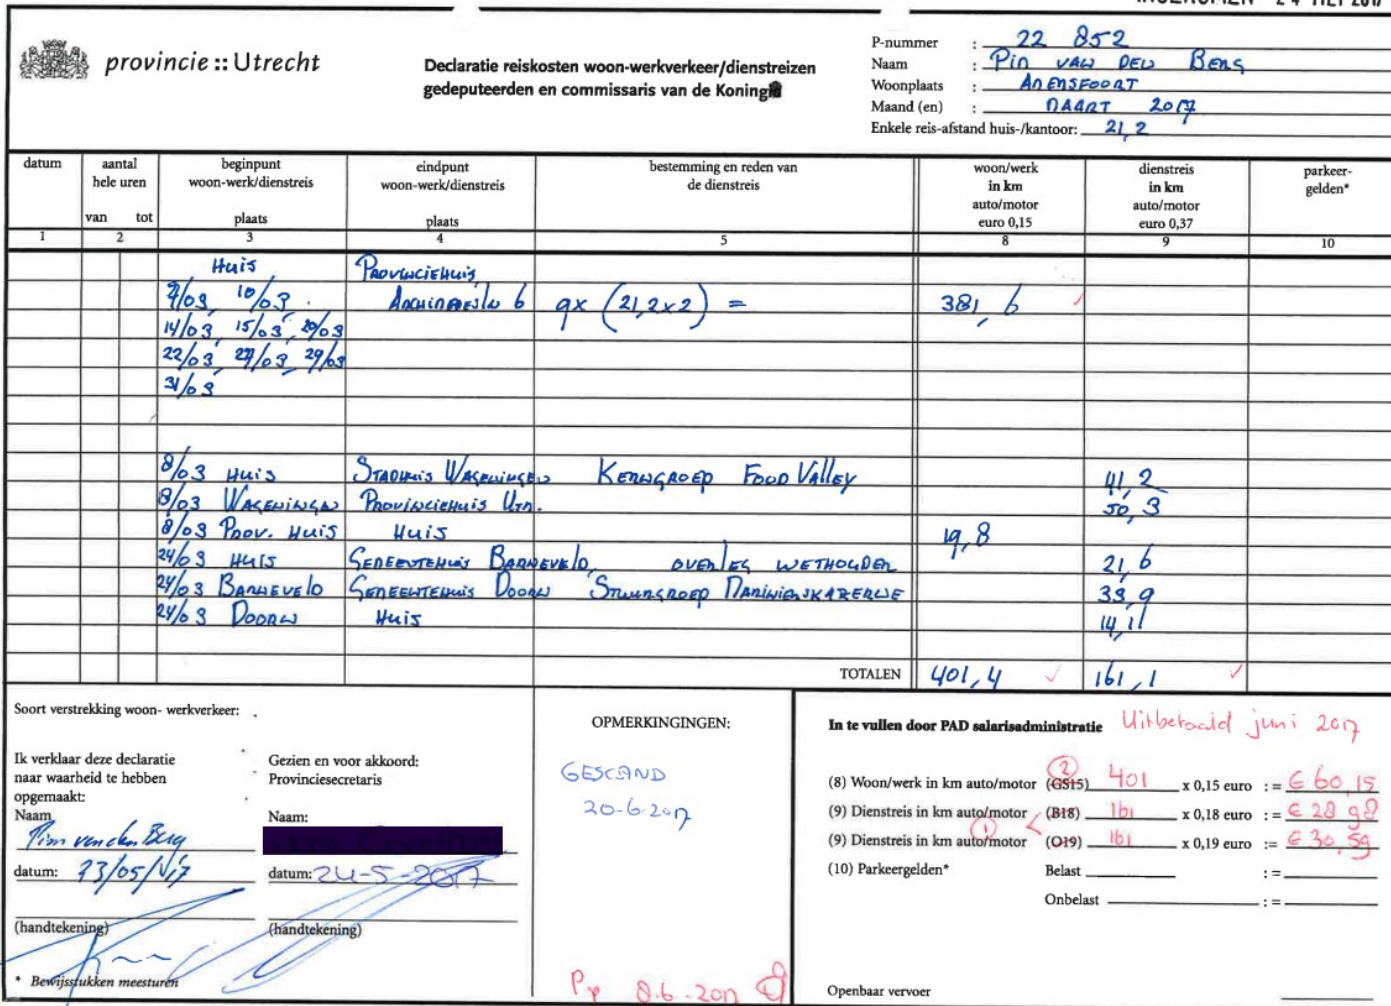 INGEKOMEN 24 MEI 2017
provincie :: Utrecht
Declaratie reiskosten woon-werkverkeer/dienstreizen
gedeputeerden en commissaris van de Koning
P-nummer : 22 852
Naam : Pim van den Berg
Woonplaats : Amersfoort
Maand (en) : Maart 2017
Enkele reis-afstand huis-/kantoor: 21,2
datum aantal hele uren van tot beginpunt woon-werk/dienstreis plaats eindpunt woon-werk/dienstreis plaats bestemming en reden van de dienstreis woon/werk in km auto/motor euro 0,15 dienstreis in km auto/motor euro 0,37 parkeer-gelden*
1 2 3 4 5 8 9 10
Huis Provinciehuis
7/03, 10/03, 6 9x (21,2x2) = 381,6
14/03, 15/03, 20/03
22/03, 27/03, 29/03
31/03
8/03 Huis Stadhuis Wageningen Kerngroep Food Valley 41,2
8/03 Wageningen Provinciehuis Utr. 50,3
8/03 Prov. Huis Huis 19,8
24/03 Huis Gemeentehuis Barneveld, overleg wethouder 21,6
24/03 Barneveld Gemeentehuis Doorn Stuurgroep Marinierskazerne 33,9
24/03 Doorn Huis 14,1
TOTALEN 401,4 161,1
Soort verstrekking woon- werkverkeer:
Ik verklaar deze declaratie
naar waarheid te hebben
opgemaakt:
Naam
Pim van den Berg
datum: 23/05/'17
(handtekening)
* Bewijsstukken meesturen
Gezien en voor akkoord:
Provinciesecretaris
Naam:
datum: 24-5-2017
(handtekening)
OPMERKINGINGEN:
GESCAND
20-6-2017
8-6-2017
In te vullen door PAD salarisadministratie Uitbetaald juni 2017
(8) Woon/werk in km auto/motor (GS15) 2 401 x 0,15 euro : = € 60,15
(9) Dienstreis in km auto/motor (B18) 161 x 0,18 euro : = € 28,98
(9) Dienstreis in km auto/motor 1 (O19) 161 x 0,19 euro := € 30,59
(10) Parkeergelden* Belast : =
Onbelast : =
Openbaar vervoer